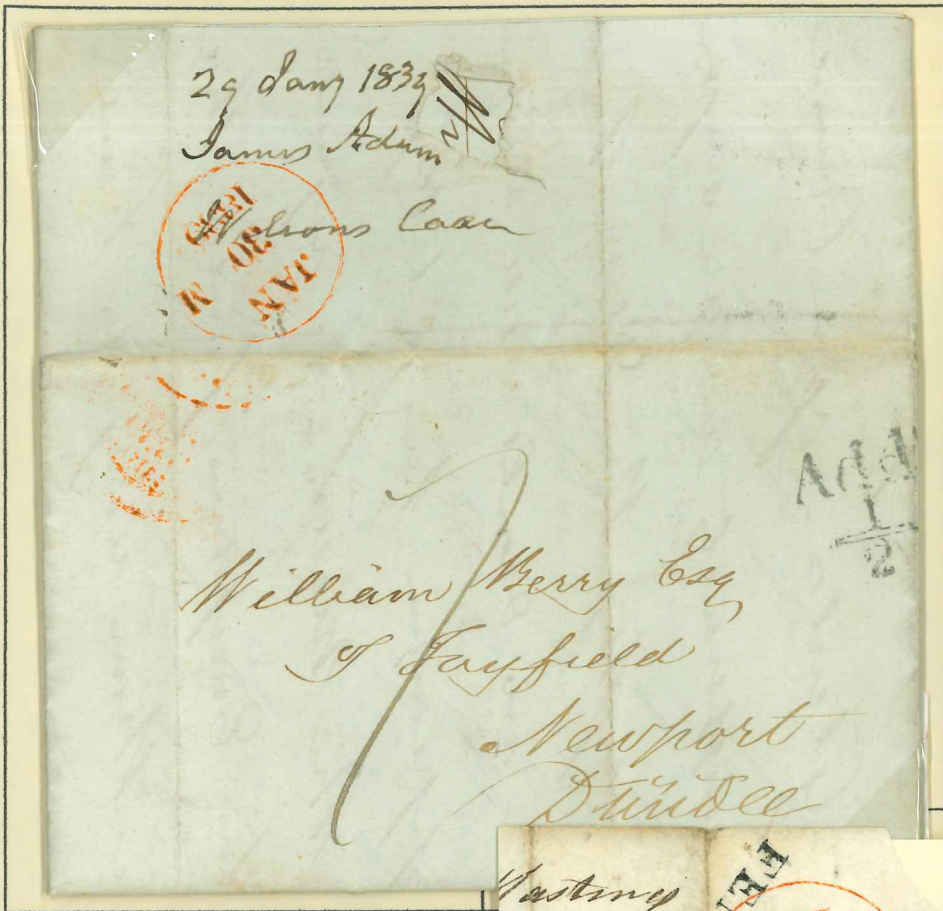 29 Jany 1839
James Adam
Wilsons Case
M
JAN
30
1839
Add
1
2
7
William Berry Esq
of Tayfield
Newport
Dundee
Hastings
FE